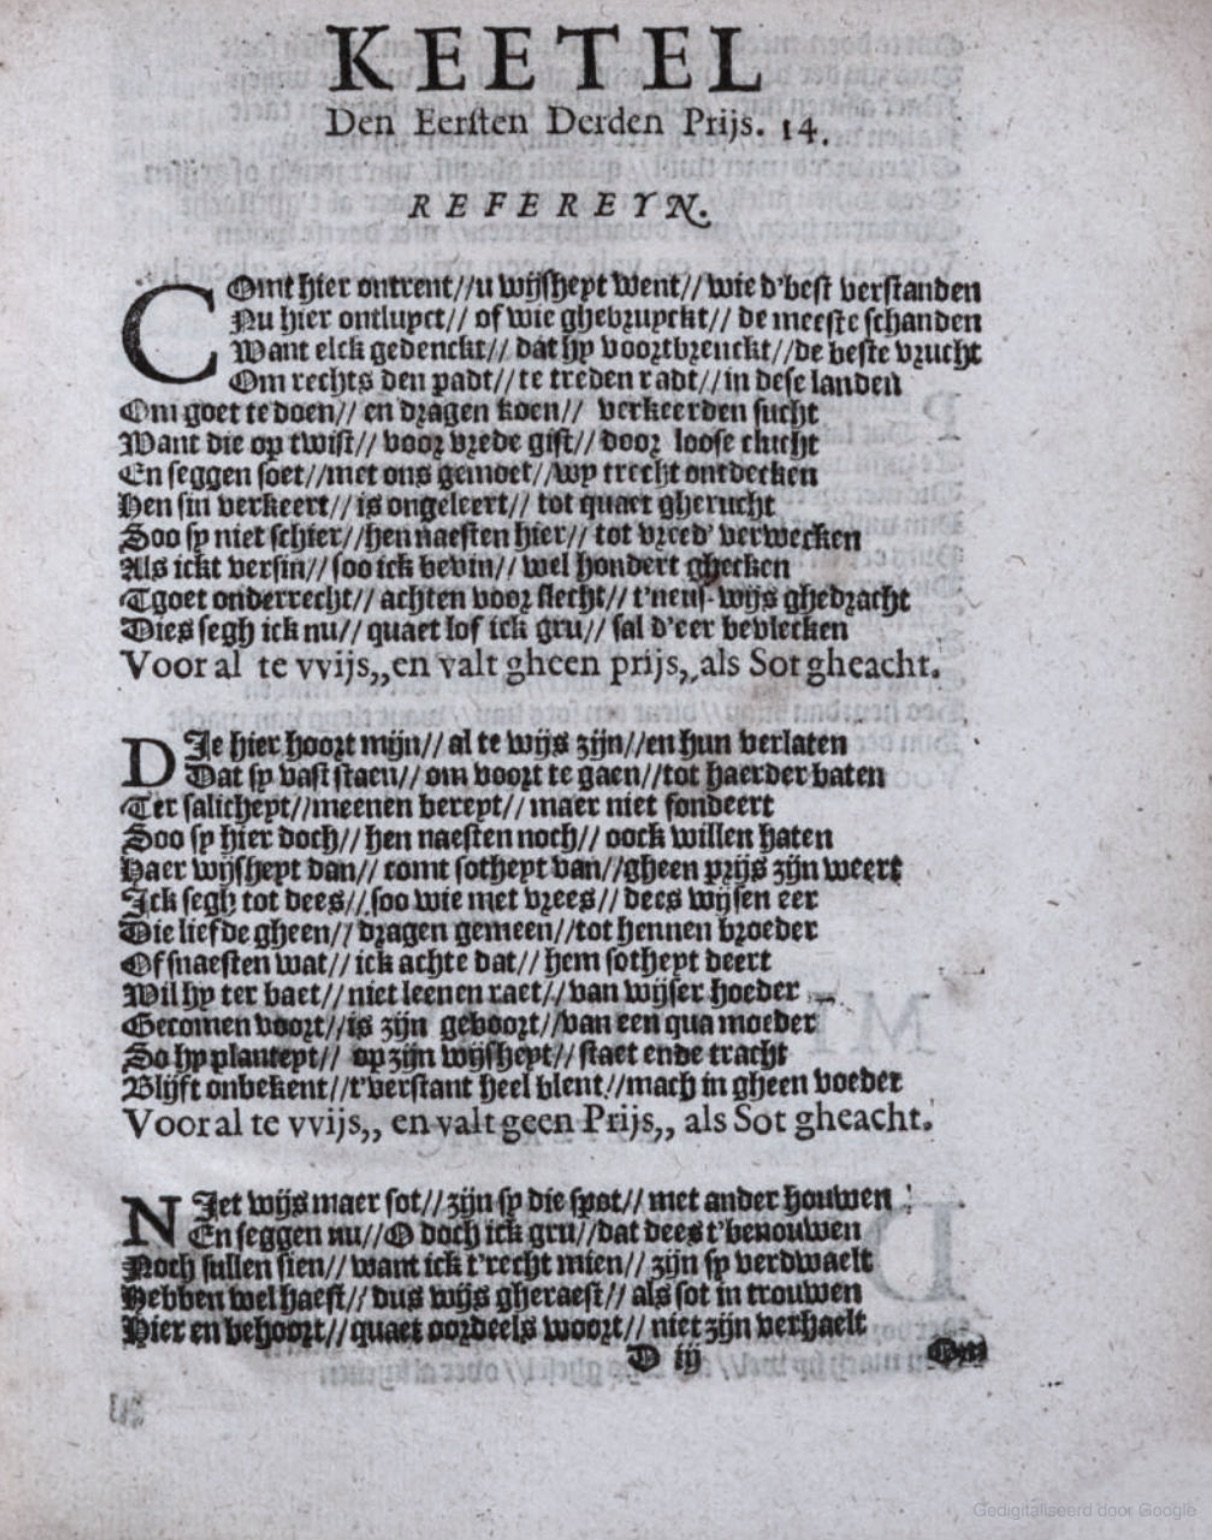 KEETEL
Den Eersten Derden Prijs. 14.
REFEREYN.
COmt hier ontrent//u wijsheyt went//wie d'best verstanden
Nu hier ontluyct//of wie ghebruyckt//de meeste schanden
Want elck gedenckt//dat hy voortbrenckt//de beste vrucht
Om rechts den padt//te treden radt//in dese landen
Om goet te doen//en dragen koen//verkeerden sucht
Want die op twist//voor vrede gist//door loose clucht
En seggen soet//met ons gemoet//wy trecht ontdecken
Hen sin verkeert//is ongeleert//tot quaet gherucht
Soo sy niet schier//hen naesten hier//tot vreed' verwecken
Als ickt versin//soo ick bevin//wel hondert ghecken
Tgoet onderrecht//achten voor slecht//t'neus-wijs ghedracht
Dies segh ick nu//quaet lof ick gru//sal d'eer bevlecken
Voor al te vvijs,,en valt gheen prijs,,als Sot gheacht.
DIe hier hoort mijn//al te wijs zijn//en hun verlaten
Dat sy vast staen//om voort te gaen//tot haerder baten
Ter salicheyt//meenen bereyt//maer niet fondeert
Soo sy hier doch//hen naesten noch//oock willen haten
Haer wijsheyt dan//comt sotheyt van//gheen prijs zijn weert
Ick segh tot dees//soo wie met vrees//dees wijsen eer
Die liefde gheen//dragen gemeen//tot hennen broeder
Of snaesten wat//ick achte dat//hem sotheyt deert
Wil hy ter baet//niet leenen raet//van wijser hoeder
Gecomen voort//is zijn geboort//van een qua moeder
So hy planteyt//op zijn wijsheyt//staet ende tracht
Blijft onbekent//t'verstant heel blent//mach in gheen voeder
Voor al te vvijs,, en valt geen Prijs,, als Sot gheacht.
NIet wijs maer sot//zijn sy die spot//met ander houwen
En seggen nu//O doch ick gru//dat dees t'benouwen
Noch sullen sien//want ick t'recht mien//zijn sy verdwaelt
Hebben wel haest//dus wijs gheraest//als sot in trouwen
Hier en behoort//quaet oordeels woort//niet zijn verhaelt
D iij
Om
Gedigitaliseerd door Google